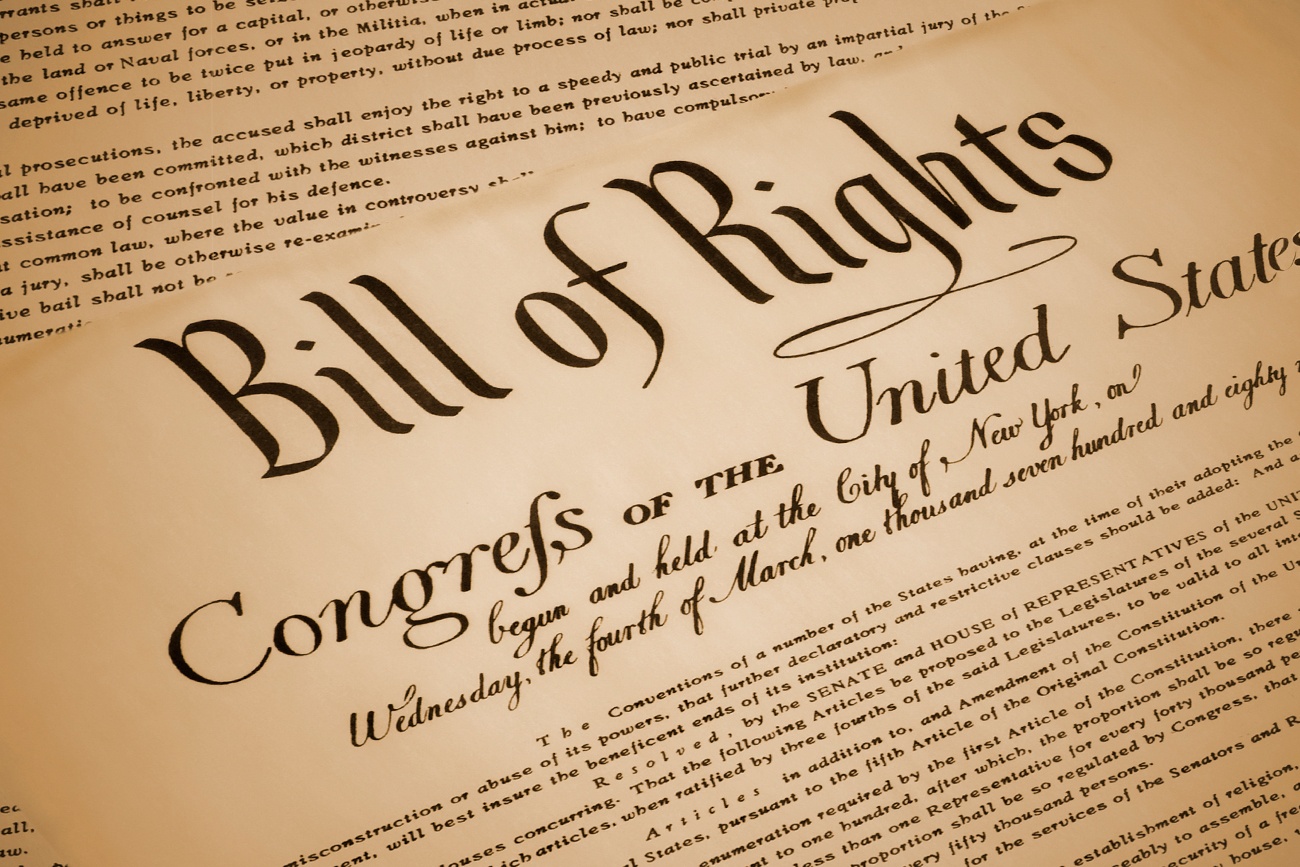 rrants shall
persons or things to be se
e held to answer for a capital, or otherwi
the land or Naval forces, or in the Militia, when in actu
same offence to be twice put in jeopardy of life or limb; nor shall be co
deprived of life, liberty, or property, without due process of law; nor shall private prop
l prosecutions, the accused shall enjoy the right to a speedy and public trial by an impartial jury of the S
all have been committed, which district shall have been previously ascertained by law, and
sation; to be confronted with the witnesses against him; to have compulsory
ssistance of counsel for his defence.
t common law, where the value in controversy shall
a jury, shall be otherwise re-exami
ive bail shall not be
numerati
Bill of Rights
Congreſs OF THE United States
begun and held at the City of New York, on
Wednesday, the fourth of March, one thousand seven hundred and eighty n
The Conventions of a number of the States having, at the time of their adopting the
misconstruction or abuse of its powers, that further declaratory and restrictive clauses should be added: And a
ent, will best insure the beneficent ends of its institution:
Resolved, by the SENATE and HOUSE of REPRESENTATIVES of the UNIT
ouses concurring. That the following Articles be proposed to the Legislatures of the several S
ich articles, when ratified by three fourths of the said Legislatures, to be valid to all inte
Articles in addition to, and Amendment of the Constitution of the Un
l States, pursuant to the fifth Article of the Original Constitution.
enumeration required by the first Article of the Constitution, there
nt to one hundred, after which, the proportion shall be so regu
less than one Representative for every forty thousand pe
proportion shall be so regulated by Congress, that
very fifty thousand persons.
for the services of the Senators and R
establishment of religion,
eably to assemble, a
security of a free
house,
all,
aw.